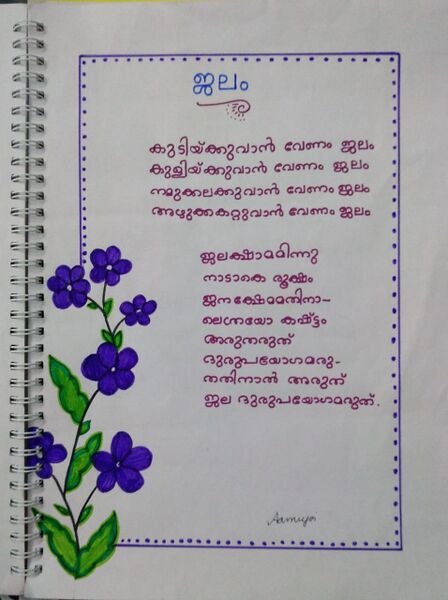 ജലം
കുടിയ്ക്കുവാൻ വേണം ജലം
കുളിയ്ക്കുവാൻ വേണം ജലം
നമുക്കലക്കുവാൻ വേണം ജലം
അഴുക്കകറ്റുവാൻ വേണം ജലം
ജലക്ഷാമമിന്നു
നാടാകെ രൂക്ഷം
ജനക്ഷേമമതിനാ-
ലെന്നയോ കഷ്ട്ടം
അരുതരുത്
ദുരുപയോഗമരു-
തതിനാൽ അരുത്
ജല ദുരുപയോഗമരുത്.